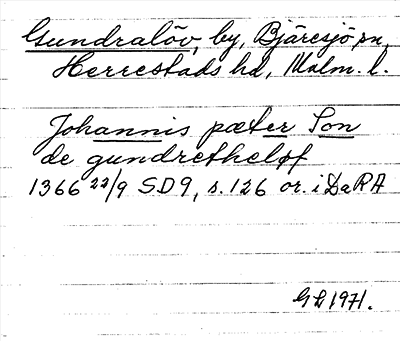 Gundralöv, by, Bjäresjö sn,
Herrestads hd, Malm. l.
Johannis pæter Son
de gundrethеløf
1366 22/9 SD9, s. 126 or. i DaRA
GL 1971.